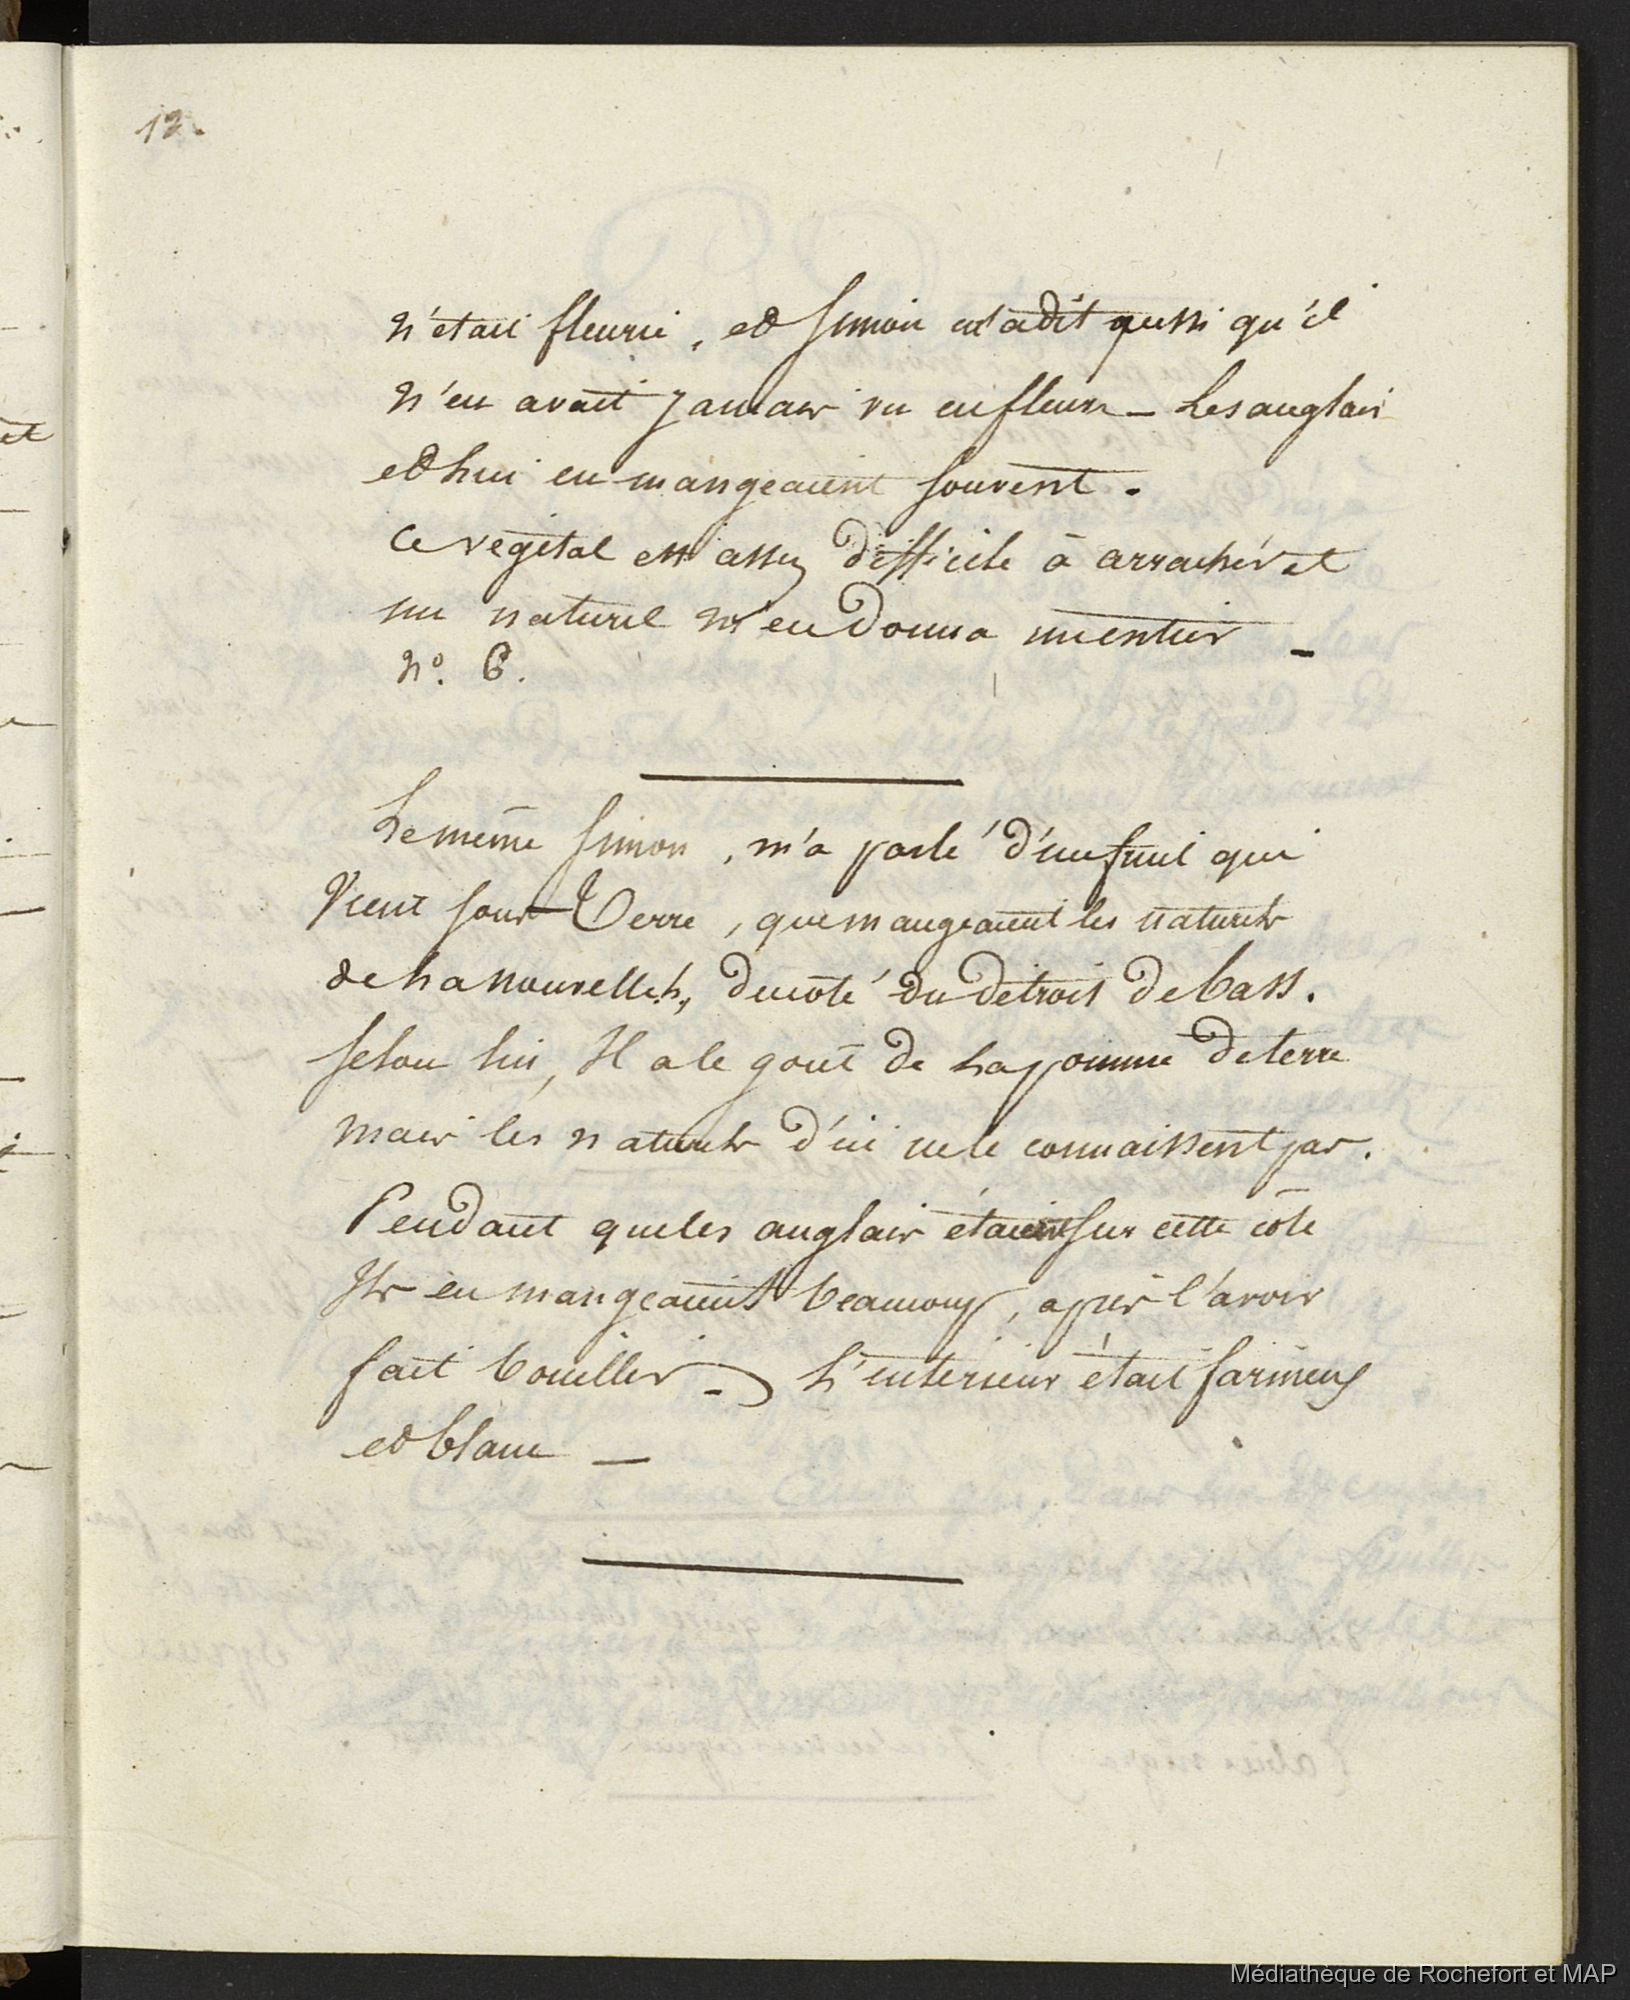 12.
n'était fleurie, et Simon m'a dit aussi qu'il
n'en avait jamais vu en fleurs _ Les anglais
et lui en mangeaient souvent.
Ce végétal est assez difficile à arracher et
un naturel m'en donna un entier _
N.º 6.
Le même Simon, m'a parlé d'un fruit qui
Vient sous Terre, que mangeaient les naturels
de la nouvelle h., du côté du détroit de bass.
Selon lui, Il a le goût de la pomme de terre
mais les naturels d'ici ne le connaissent pas.
Pendant que les anglais étaient sur cette côte
Ils en mangeaient beaucoup, après l'avoir
fait bouillir _ L'intérieur était farineux
et blanc _
Médiathèque de Rochefort et MAP